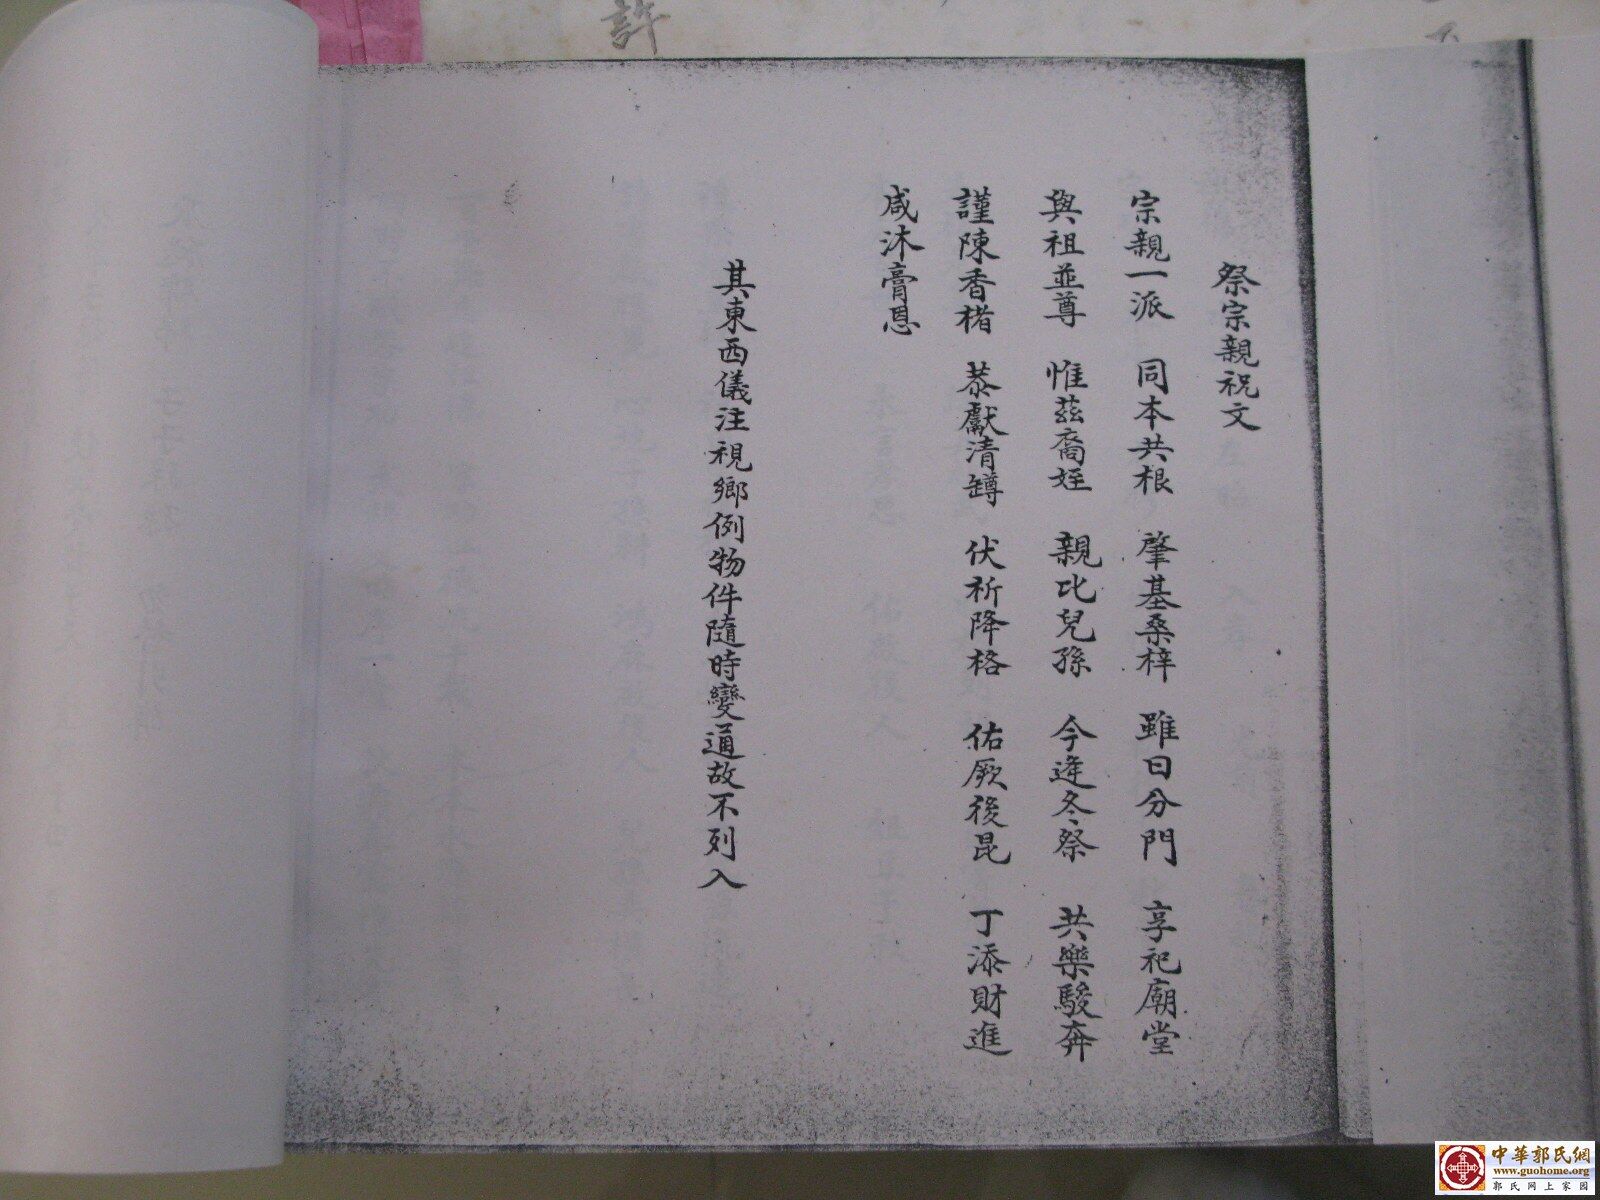 許
祭宗親祝文
宗親一派 同本共根 肇基桑梓 雖曰分門 享祀廟堂
與祖並尊 惟茲裔姪 親比兒孫 今逢冬祭 共樂駿奔
謹陳香楮 恭獻清罇 伏祈降格 佑厥後昆 丁添財進
咸沐膏恩
其東西儀注視鄉例物件隨時變通故不列入
中華郭氏網
www.guohome.org
郭氏网上家园